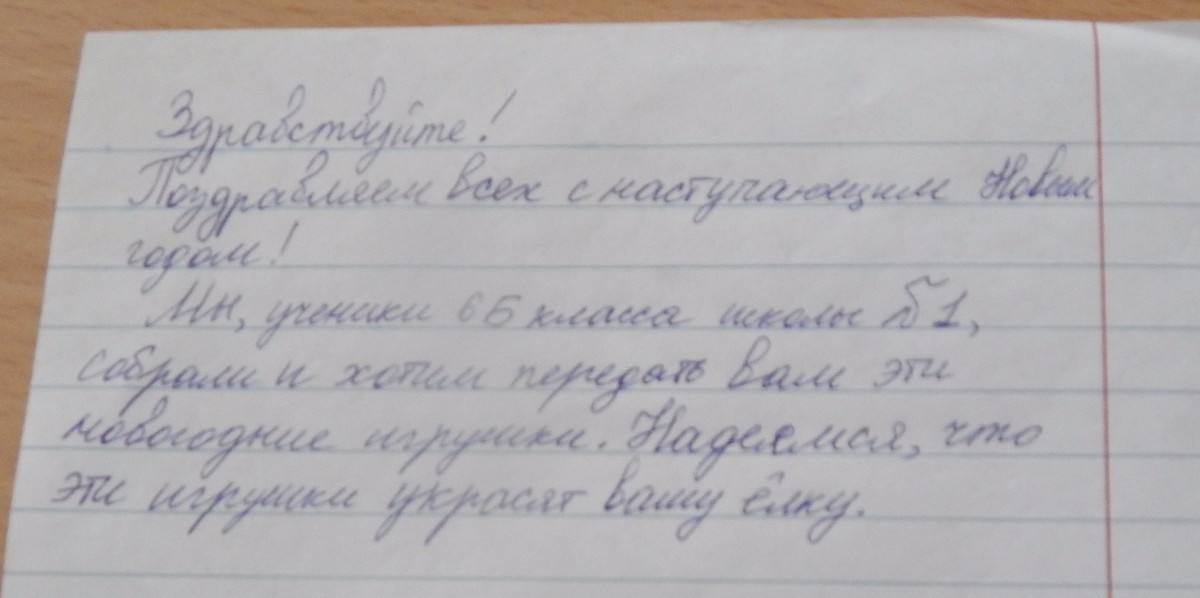 Здравствуйте!
Поздравляем всех с наступающим Новым
годом!
Мы, ученики 6Б класса школы №1,
собрали и хотим передать вам эти
новогодние игрушки. Надеемся, что
эти игрушки украсят вашу ёлку.